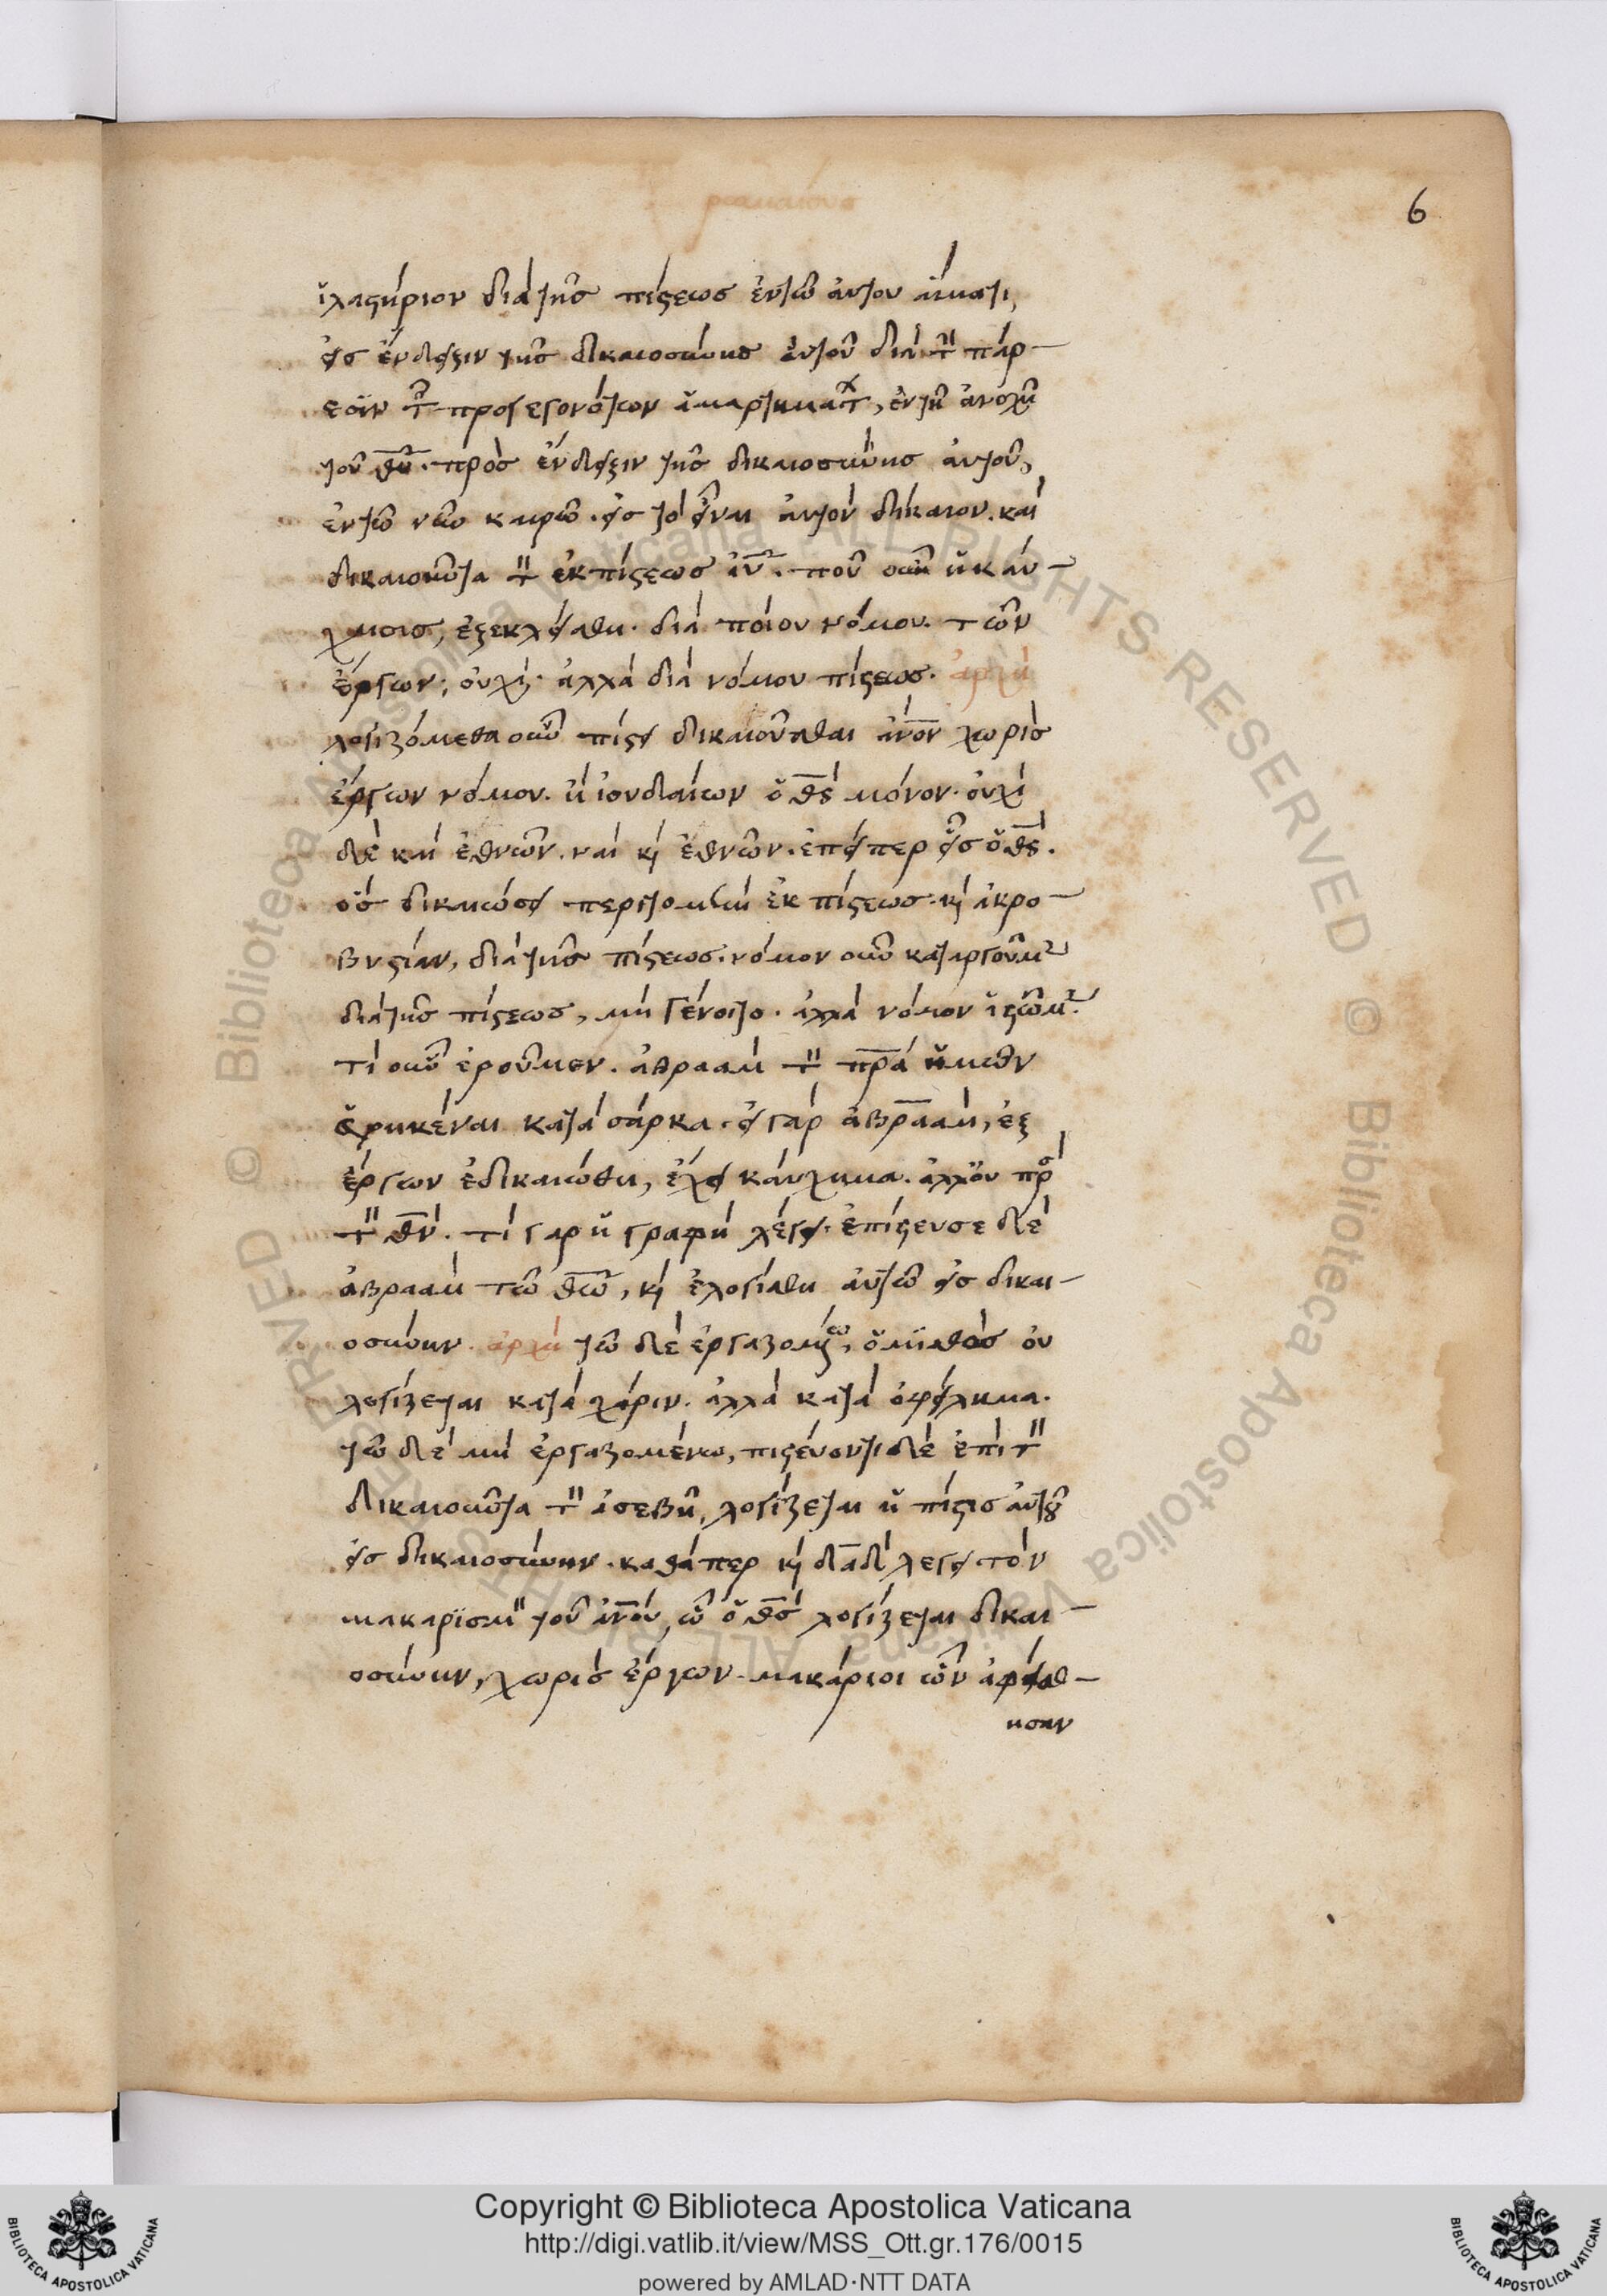 ρωμαίους
6
ἱλαστήριον διὰ τῆς πίστεως ἐν τῶ αὐτοῦ αἵματι,
εἰς ἔνδειξιν τῆς δικαιοσύνης αὐτοῦ διὰ τ̀ πάρ-
εσιν τ̑ προγεγονότων ἁμαρτημάτ, ἐν τῆ ἀνοχῆ
τοῦ θ̅υ̅. πρὸς ἔνδειξιν τῆς δικαιοσύνης αὐτοῦ,
ἐν τῶ νῦν καιρῶ. εἰς τὸ εἶναι αὐτὸν δίκαιον. καὶ
δικαιοῦντα τ̀ ἐκ πίστεως ι̅υ̅. ποῦ οὖν ἡ καύ-
χησις, ἐξεκλείσθη. διὰ ποίου νόμου. τῶν
ἔργων; οὐχί. ἀλλὰ διὰ νόμου πίστεως. ἀρχὴ
λογιζόμεθα οὖν πίστει δικαιοῦσθαι ἀ̅ν̅ο̅ν̅ χωρὶς
ἔργων νόμου. ἢ ἰουδαίων ὁ θ̅ς̅ μόνον. οὐχὶ
δὲ καὶ ἐθνῶν. ναὶ κ̀ ἐθνῶν. ἐπείπερ εἷς ὁ θ̅ς̅.
ὃς δικαιώσει περιτομὴν ἐκ πίστεως. κ̀ ἀκρο-
βυστίαν, διὰ τῆς πίστεως. νόμον οὖν καταργοῦμ
διὰ τῆς πίστεως, μὴ γένοιτο. ἀλλὰ νόμον ἱστῶμ.
τί οὖν ἐροῦμεν. ἀβραὰμ τ̀ π̅ρ̅α̅ ἡμῶν
εὑρηκέναι κατὰ σάρκα. εἰ γὰρ ἀβραὰμ, ἐξ
ἔργων ἐδικαιώθη, ἔχει καύχημα. ἀλλ' οὐ πρ
τ̀ θ̅ν̅. τί γὰρ ἡ γραφὴ λέγει. ἐπίστευσε δὲ
ἀβραὰμ τῶ θ̅ω̅, κ̀ ἐλογίσθη αὐτῶ εἰς δικαι-
οσύνην. ἀρχὴ τῶ δὲ ἐργαζομ̅ω, ὁ μισθὸς οὐ
λογίζεται κατὰ χάριν. ἀλλὰ κατὰ ὀφείλημα.
τῶ δὲ μὴ ἐργαζομένω, πιστεύοντι δὲ ἐπὶ τ̀
δικαιοῦντα τ̀ ἀσεβῆ, λογίζεται ἡ πίστις αὐτοῦ
εἰς δικαιοσύνην. καθάπερ κ̀ δ̅α̅δ̅ λέγει τὸν
μακαρϊσμ̀ τοῦ ἀ̅ν̅ο̅υ̅, ὧ ὁ θ̅ς̅ λογίζεται δικαι-
οσύνην, χωρὶς ἔργων. μακάριοι ὧν ἀφείθ-
ησαν
Copyright © Biblioteca Apostolica Vaticana
http://digi.vatlib.it/view/MSS_Ott.gr.176/0015
powered by AMLAD·NTT DATA